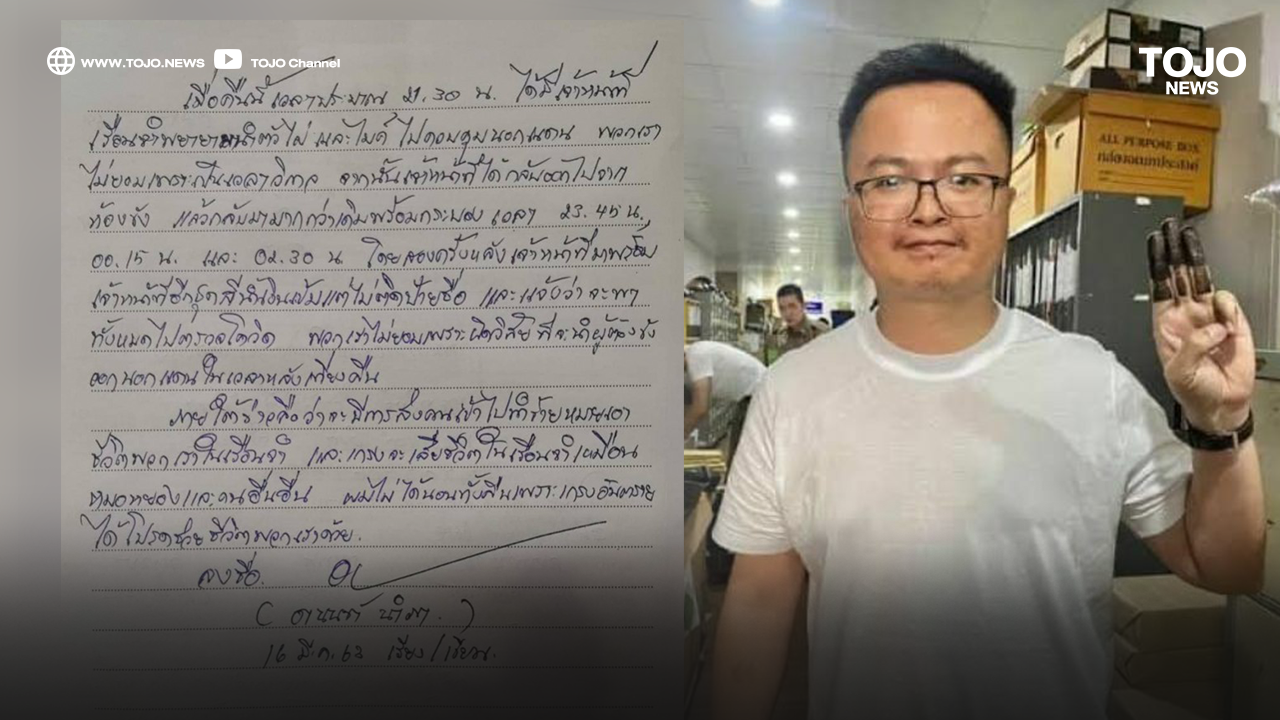 WWW.TOJO.NEWS TOJO Channel
TOJO
NEWS
เมื่อคืนนี้เวลาประมาณ 21.30 น. ได้มีเจ้าหน้าที่
เรือนจำพยายามนำตัวไผ่ และไมค์ ไปควบคุมนอกแดน พวกเรา
ไม่ยอมเพราะเป็นเวลาวิกาล จากนั้นเจ้าหน้าที่ได้กลับออกไปจาก
ห้องขัง แล้วกลับมามากกว่าเดิมพร้อมกระบอง เวลา 23.45 น.,
00.15 น. และ 02.30 น โดยสองครั้งหลังเจ้าหน้าที่มาพร้อม
เจ้าหน้าที่อีกชุดสีน้ำเงินเข้มแต่ไม่ติดป้ายชื่อ และแจ้งว่าจะพา
ทั้งหมดไปตรวจโควิด พวกเราไม่ยอมเพราะผิดวิสัยที่จะนำผู้ต้องขัง
ออกนอกแดนในเวลาหลังเที่ยงคืน
ภายใต้ข่าวลือว่าจะมีการส่งคนเข้าไปทำร้ายหมายเอา
ชีวิตพวกเราในเรือนจำ และเกรงจะเสียชีวิตในเรือนจำเหมือน
หมอหยองและคนอื่นอื่น ผมไม่ได้นอนทั้งคืนเพราะเกรงอันตราย
ได้โปรดช่วยชีวิตพวกเราด้วย.
ลงชื่อ.
( อานนท์ นำภา. )
16 มี.ค. 64 เขียน.
ALL PURPOSE BOX
กล่องอเนกประสงค์